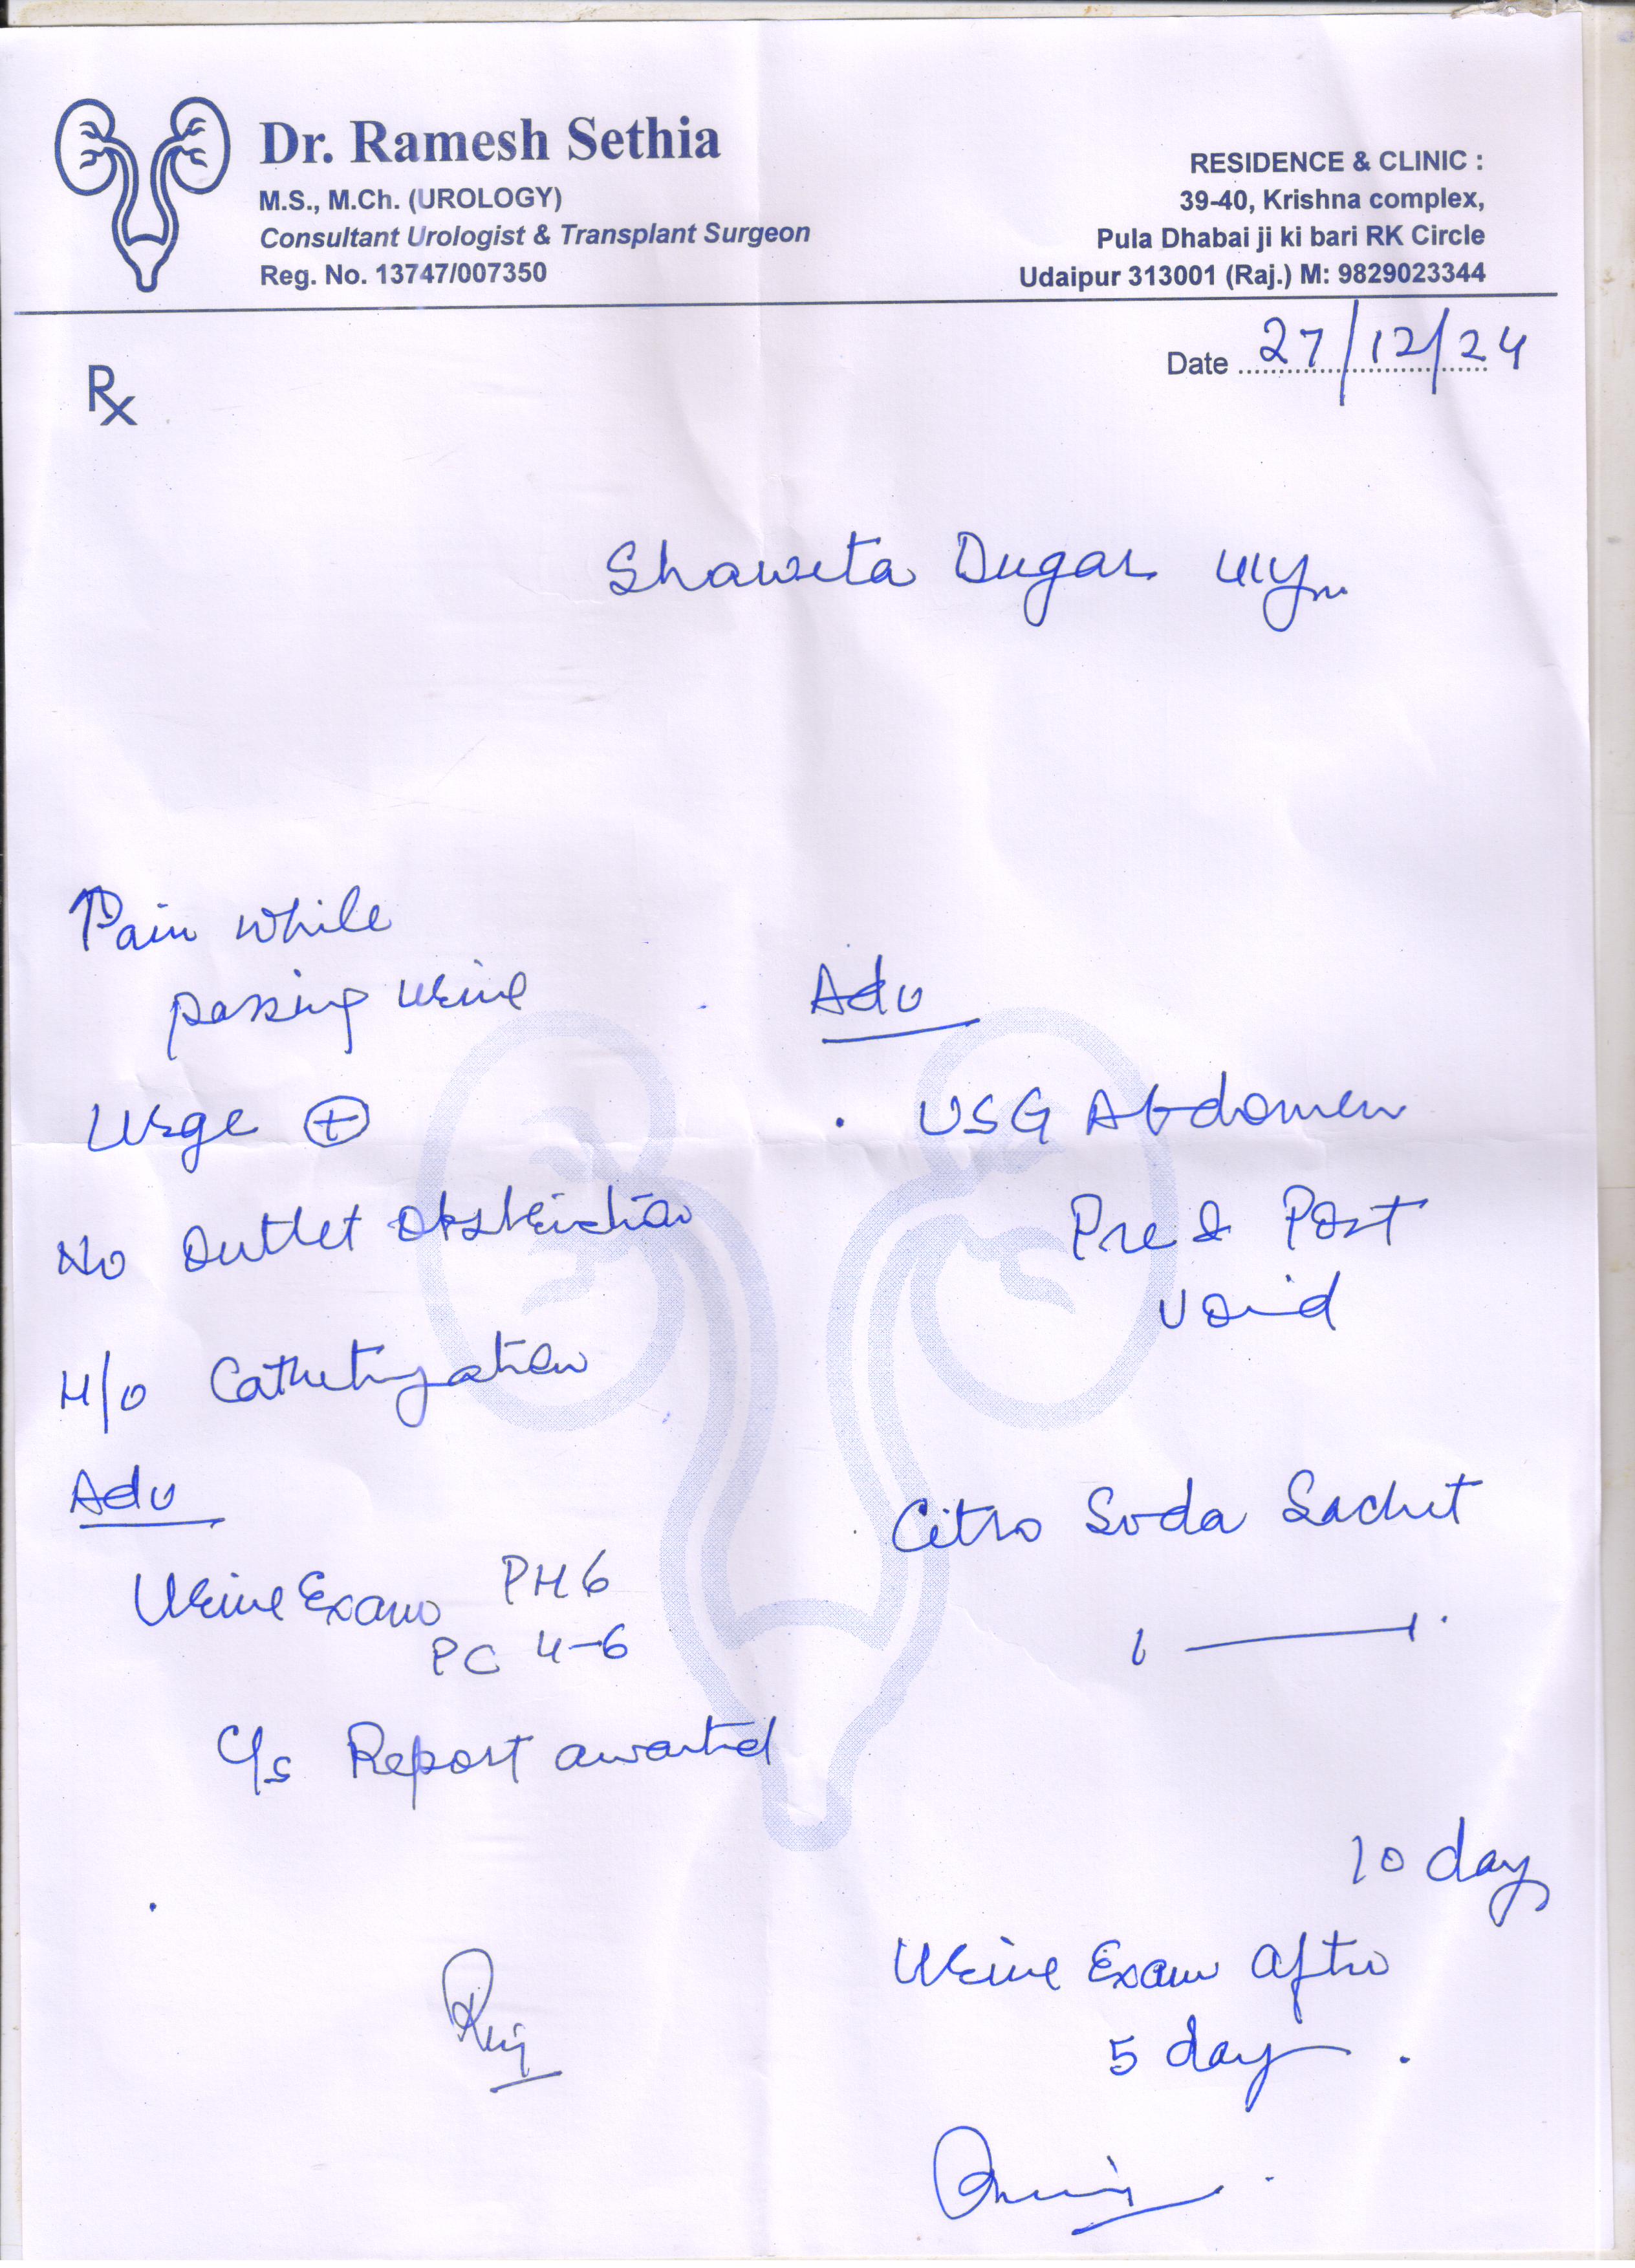 Dr. Ramesh Sethia
M.S., M.Ch. (UROLOGY)
Consultant Urologist & Transplant Surgeon
Reg. No. 13747/007350
RESIDENCE & CLINIC :
39-40, Krishna complex,
Pula Dhabai ji ki bari RK Circle
Udaipur 313001 (Raj.) M: 9829023344
Date 27/12/24
Rx
Shaweta Dugar 41yrs
Pain while
passing Urine
Urge ⊕
No Outlet Obstruction
H/o Catheterization
Adv
Urine Exam PH 6
PC 4-6
C/s Report awaited
Adv
USG Abdomen
Pre & Post
Void
Citro Soda Sachet
1 — 1
10 days
Urine Exam after
5 days